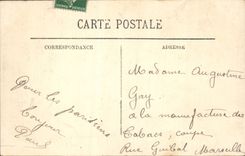 CARTE POSTALE
CORRESPONDANCE
ADRESSE
Pour les
Bonjour
Madame Augustine
Gay
à la manufacture des
Tabacs, coupe
Rue Guibal Marseille